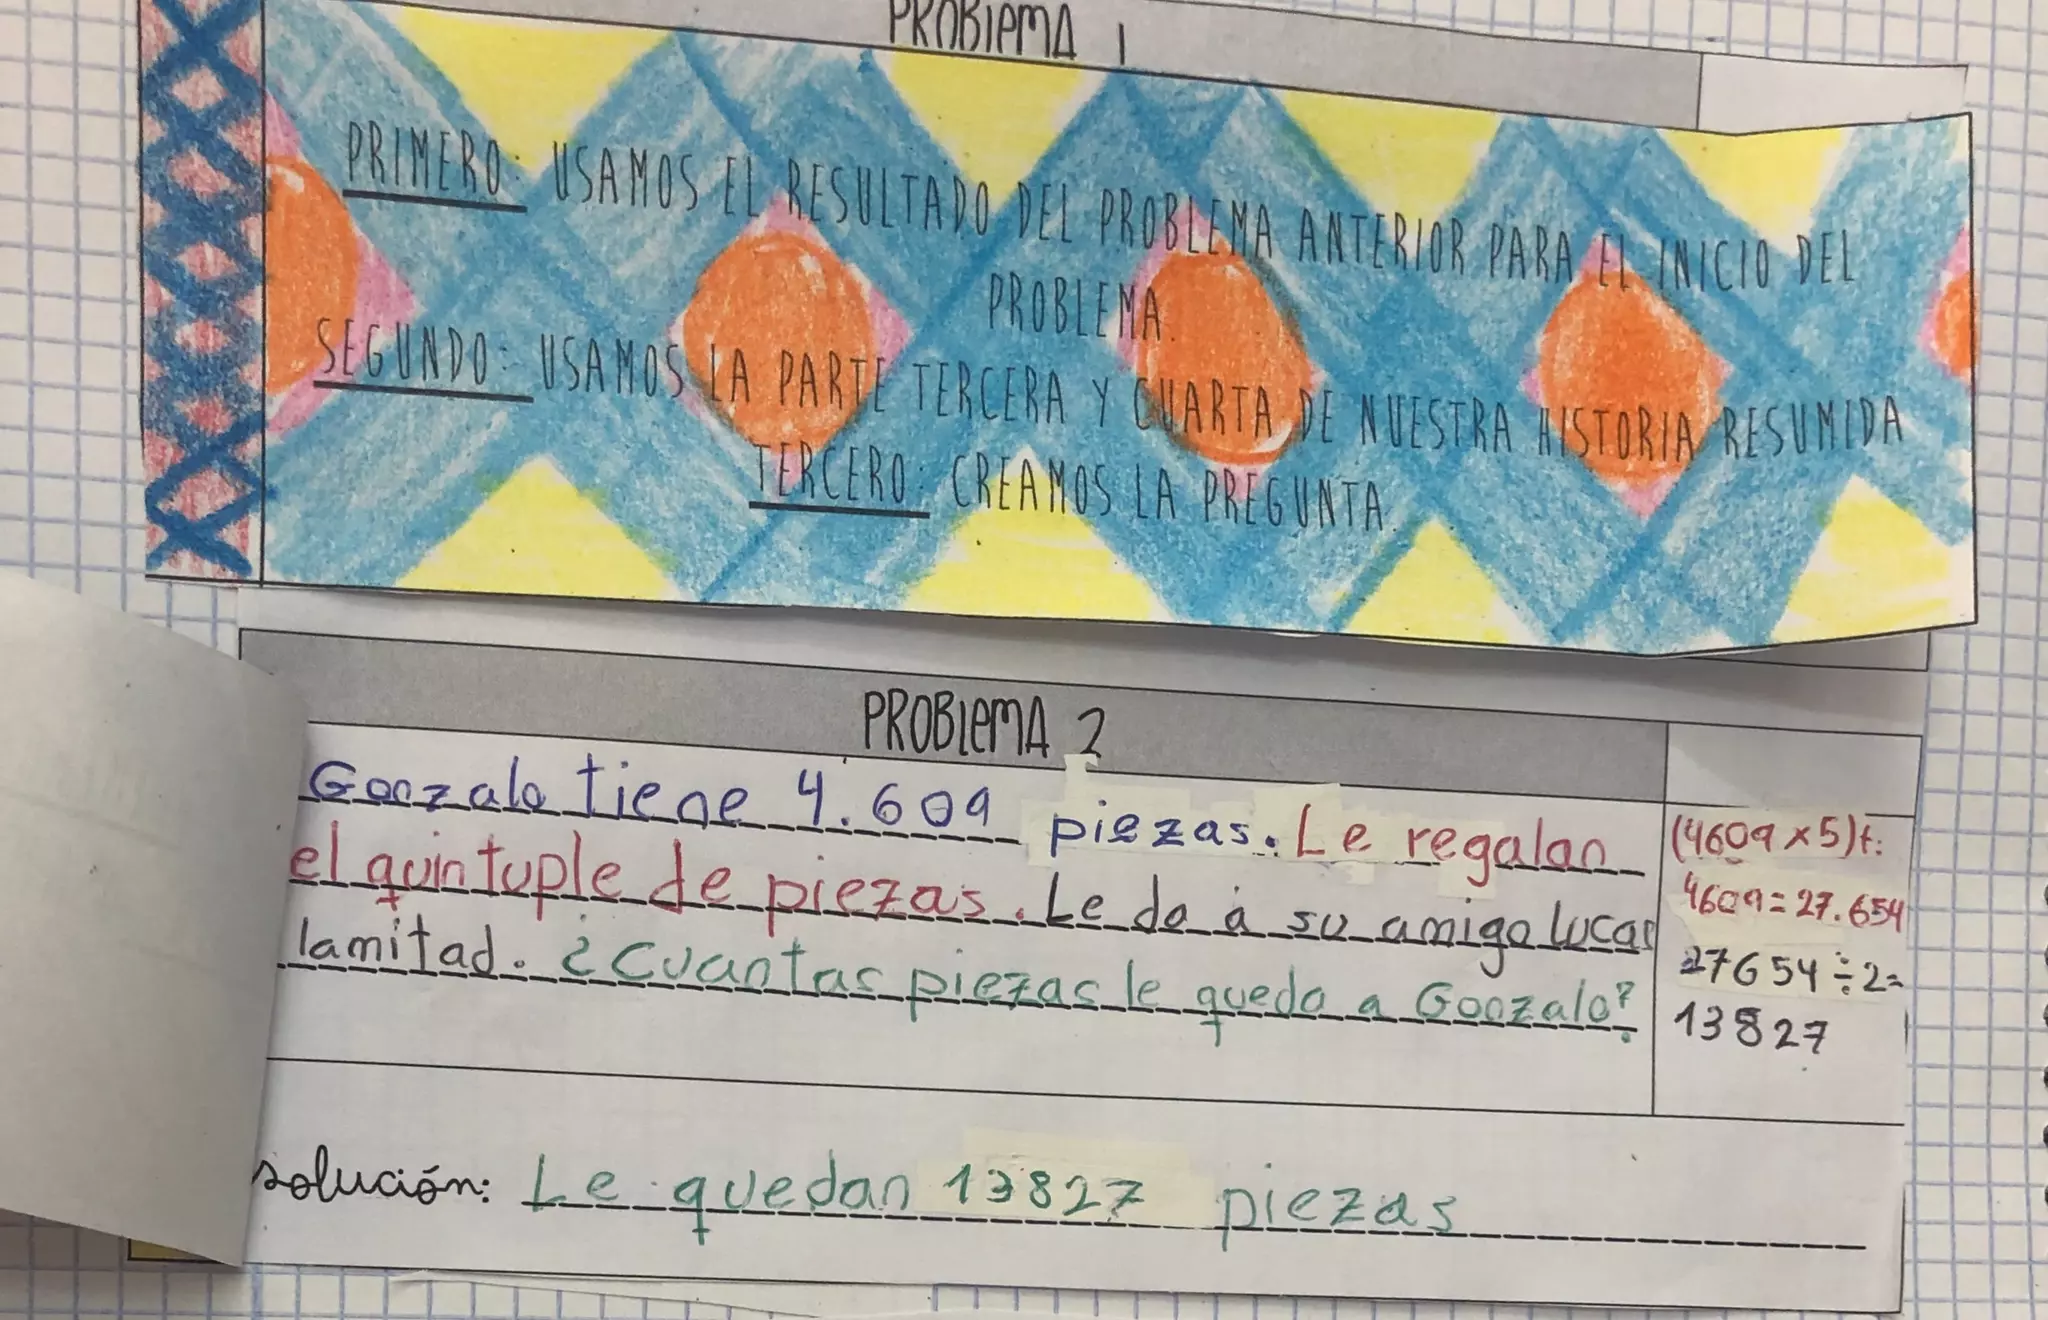 PROBlEMA 1
PRIMERO: USAMOS EL RESULTADO DEL PROBLEMA ANTERIOR PARA EL INICIO DEL
PROBLEMA.
SEGUNDO: USAMOS LA PARTE TERCERA Y CUARTA DE NUESTRA HISTORIA RESUMIDA
TERCERO: CREAMOS LA PREGUNTA.
PROBlEMA 2
Gonzalo tiene 4.609 piezas. Le regalan
el quintuple de piezas. Le da a su amigo lucas
la mitad. ¿Cuantas piezas le queda a Gonzalo?
(4609 x 5)+
4609 = 27.654
27654 ÷ 2 =
13827
solución: Le quedan 13827 piezas